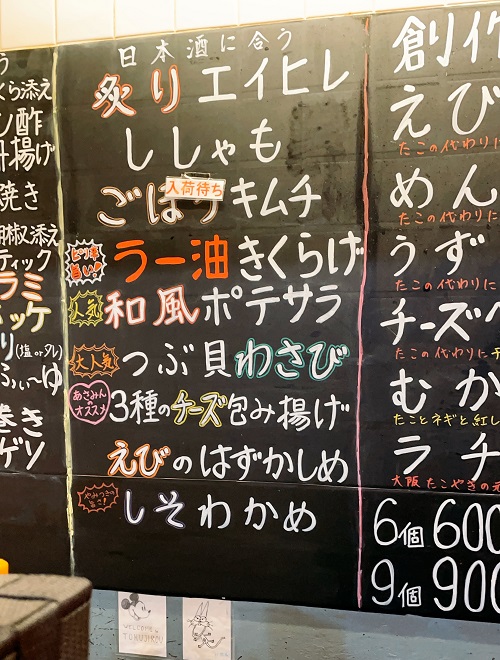 う
くら添え
ン酢
揚げ
焼き
胡椒添え
ティック
ラミ
り(塩orタレ)
ふぃ〜ゆ
巻き
ゲソ
日本酒に合う
炙りエイヒレ
ししゃも
ごぼうキムチ
入荷待ち
ピリ辛旨い!!
ラー油きくらげ
人気
和風ポテサラ
大人気
つぶ貝わさび
あさみんのオススメ
3種のチーズ包み揚げ
えびのはずかしめ
やみつきの旨さ!
しそわかめ
創作
えび
たこの代わりに
めん
たこの代わりに
うず
たこの代わりに
チーズ
たこの代わりに
むか
たことネギと紅し
ラチ
大阪たこやきの元
6個 600
9個 900
WELCOME
TO